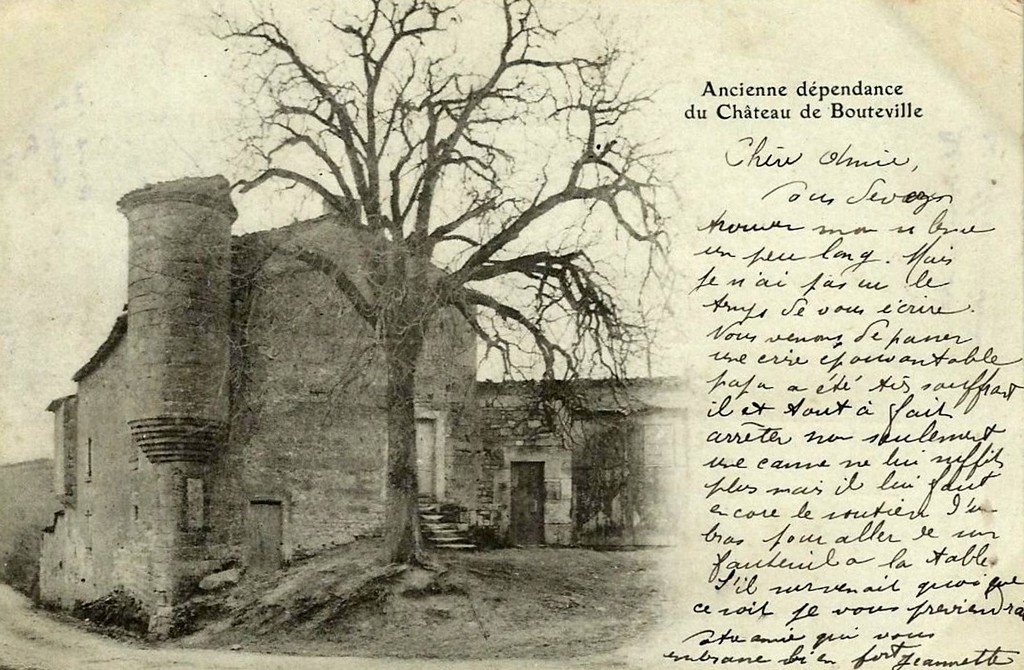 Ancienne dépendance
du Château de Bouteville
Chère Amie,
vous devez
trouver mon silence
un peu long. Mais
je n'ai pas eu le
temps de vous écrire.
Nous venons de passer
une crise épouvantable
papa a été très souffrant
il est tout à fait
arrêter non seulement
une canne ne lui suffit
plus mais il lui faut
encore le soutien d'un
bras pour aller de son
fauteuil a la table.
S'il survenait quoi que
ce soit je vous préviendrai
amie qui vous
embrasse bien fort Jeannette